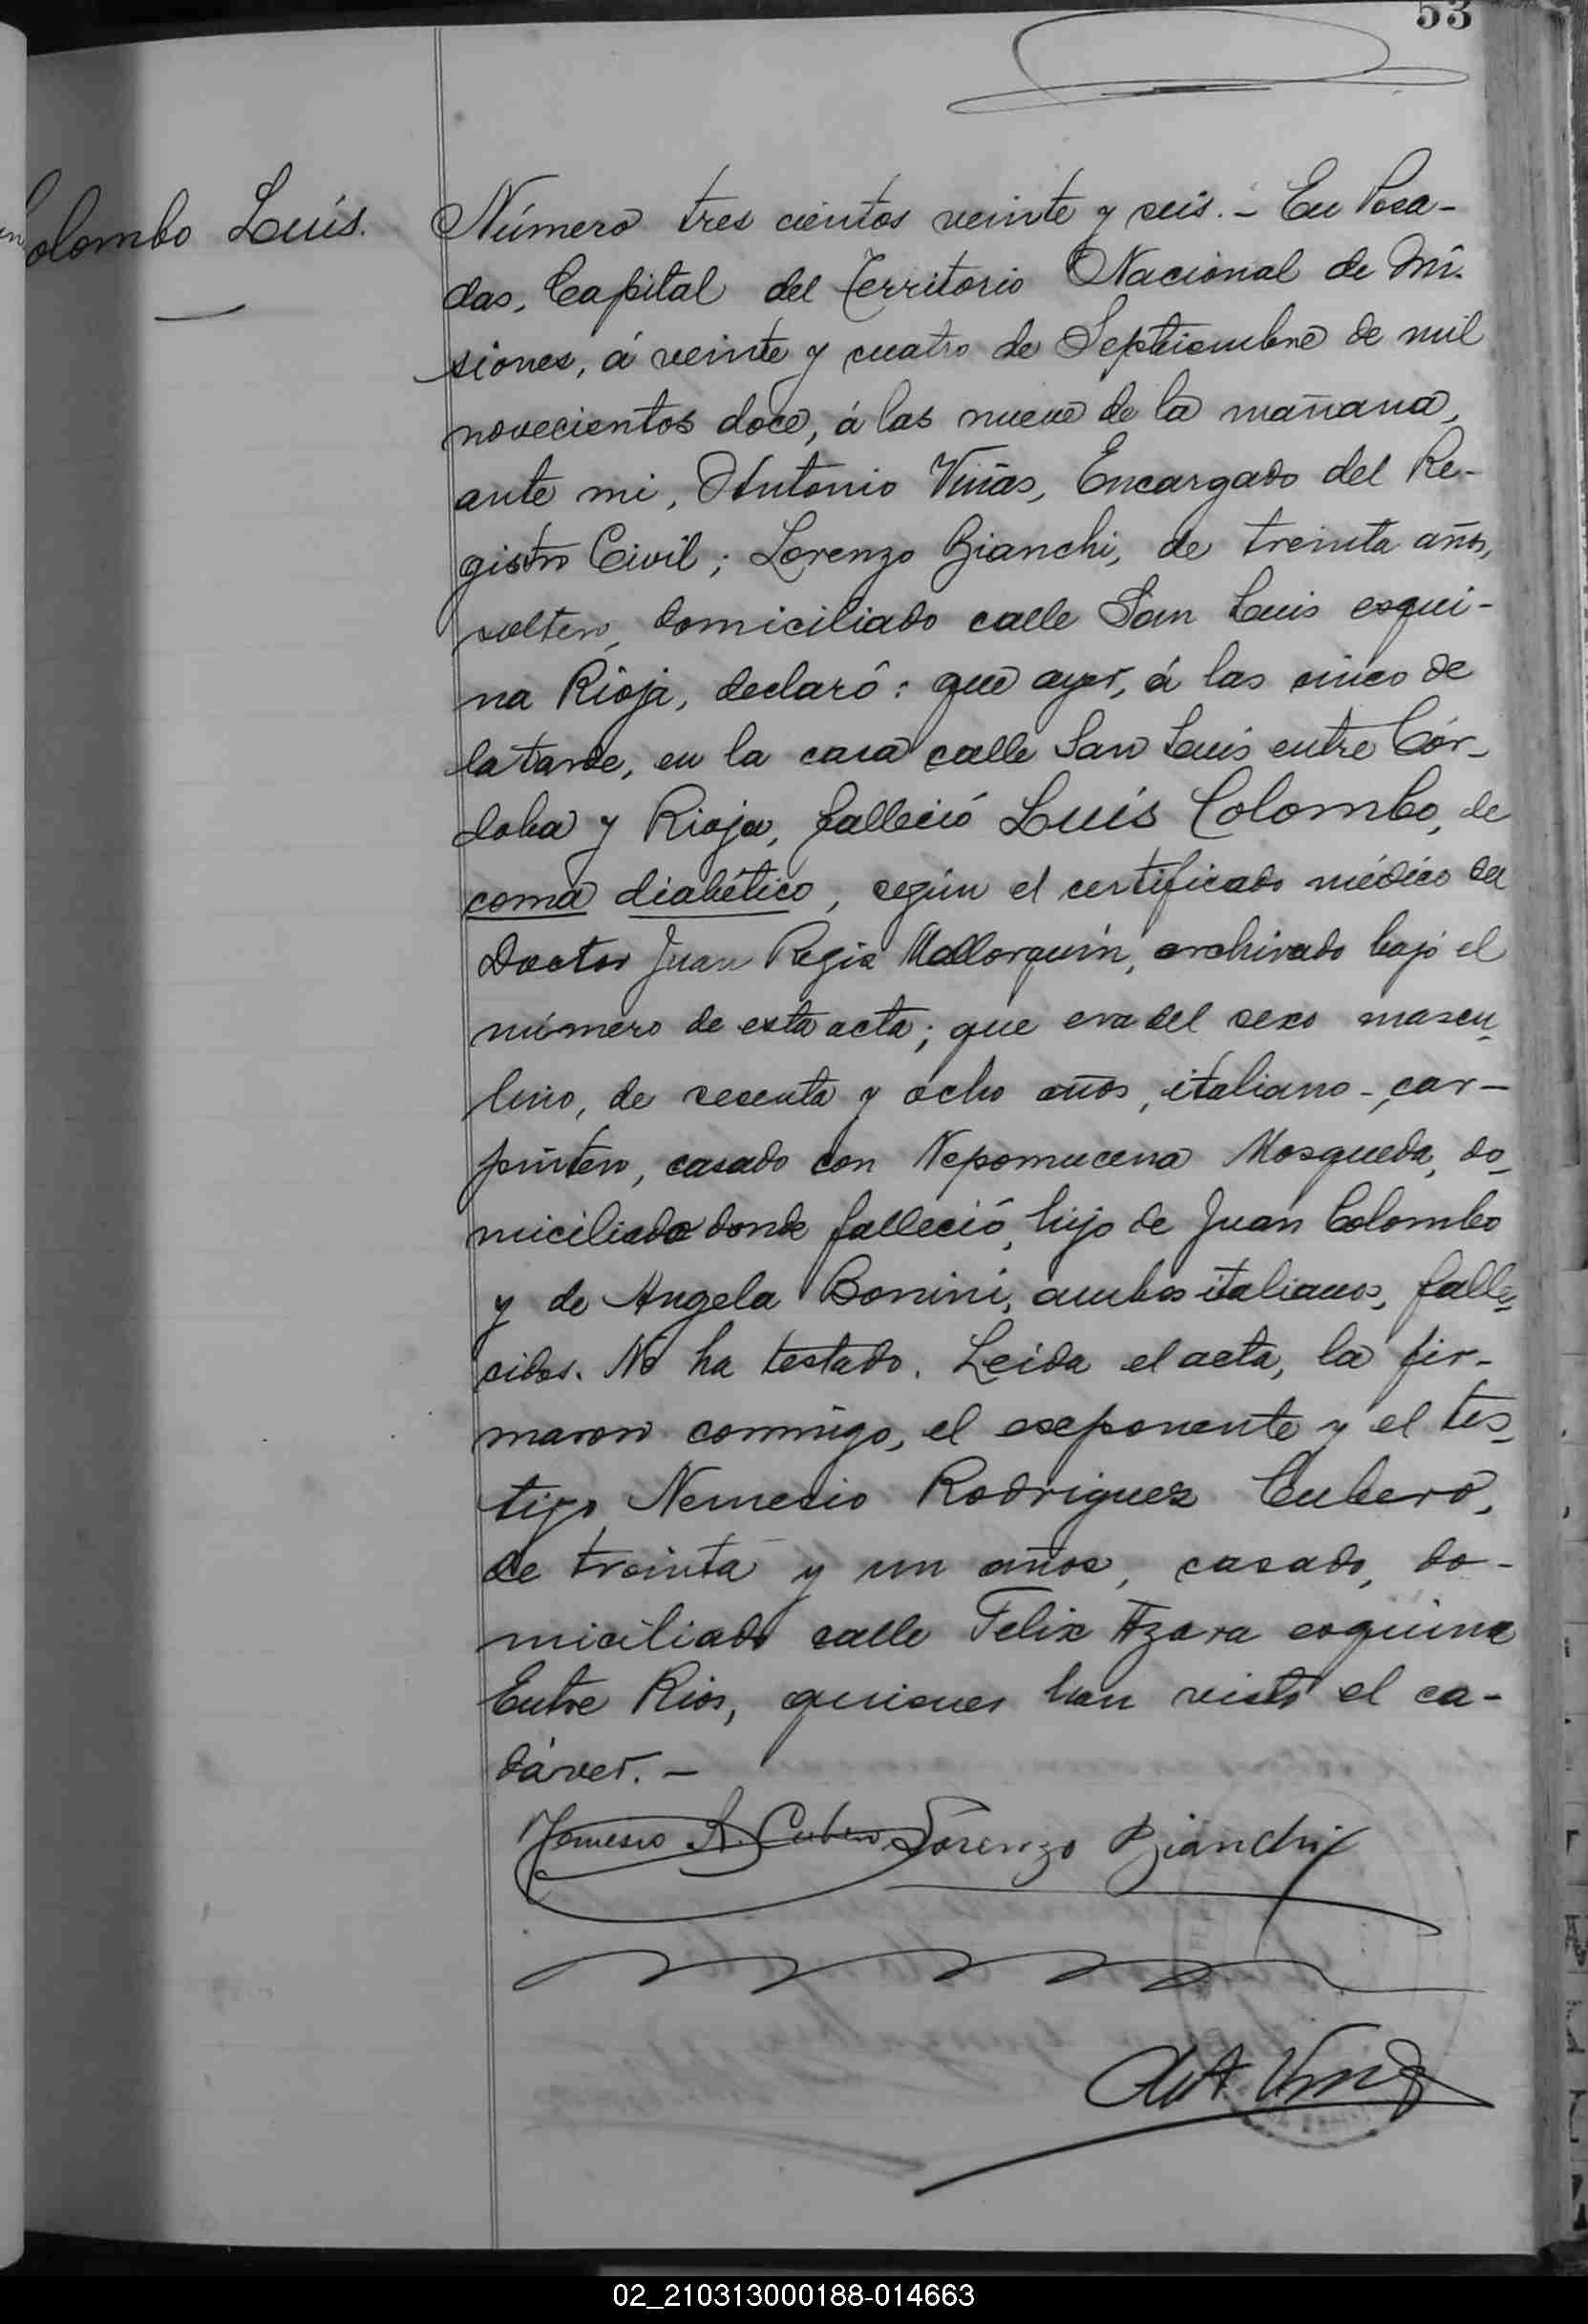 53
Colombo Luis.
Número tres cientos veinte y seis. – En Posa-
das, Capital del Territorio Nacional de Mi-
siones, á veinte y cuatro de Septiembre de mil
novecientos doce, á las nueve de la mañana,
ante mi, Antonio Viñas, Encargado del Re-
gistro Civil; Lorenzo Bianchi, de treinta años,
soltero, domiciliado calle San Luis esqui-
na Rioja, declaró: que ayer, á las cinco de
la tarde, en la casa calle San Luis entre Cór-
doba y Rioja, falleció Luis Colombo, de
coma diabético, según el certificado médico del
Doctor Juan Regis Mallorquin, archivado bajo el
número de esta acta; que era del sexo mascu-
lino, de sesenta y ocho años, italiano-, car-
pintero, casado con Nepomucena Mosqueda, do-
miciliado donde falleció, hijo de Juan Colombo
y de Angela Bonini, ambos italianos, falle-
cidos. No ha testado. Leida el acta, la fir-
maron conmigo, el exponente y el tes-
tigo Nemesio Rodriguez Cubero,
de treinta y un años, casado, do-
miciliado calle Felix Azara esquina
Entre Rios, quienes han visto el ca-
dáver. –
Nemesio R. Cubero Lorenzo Bianchi
Ant Viñas
02_210313000188-014663